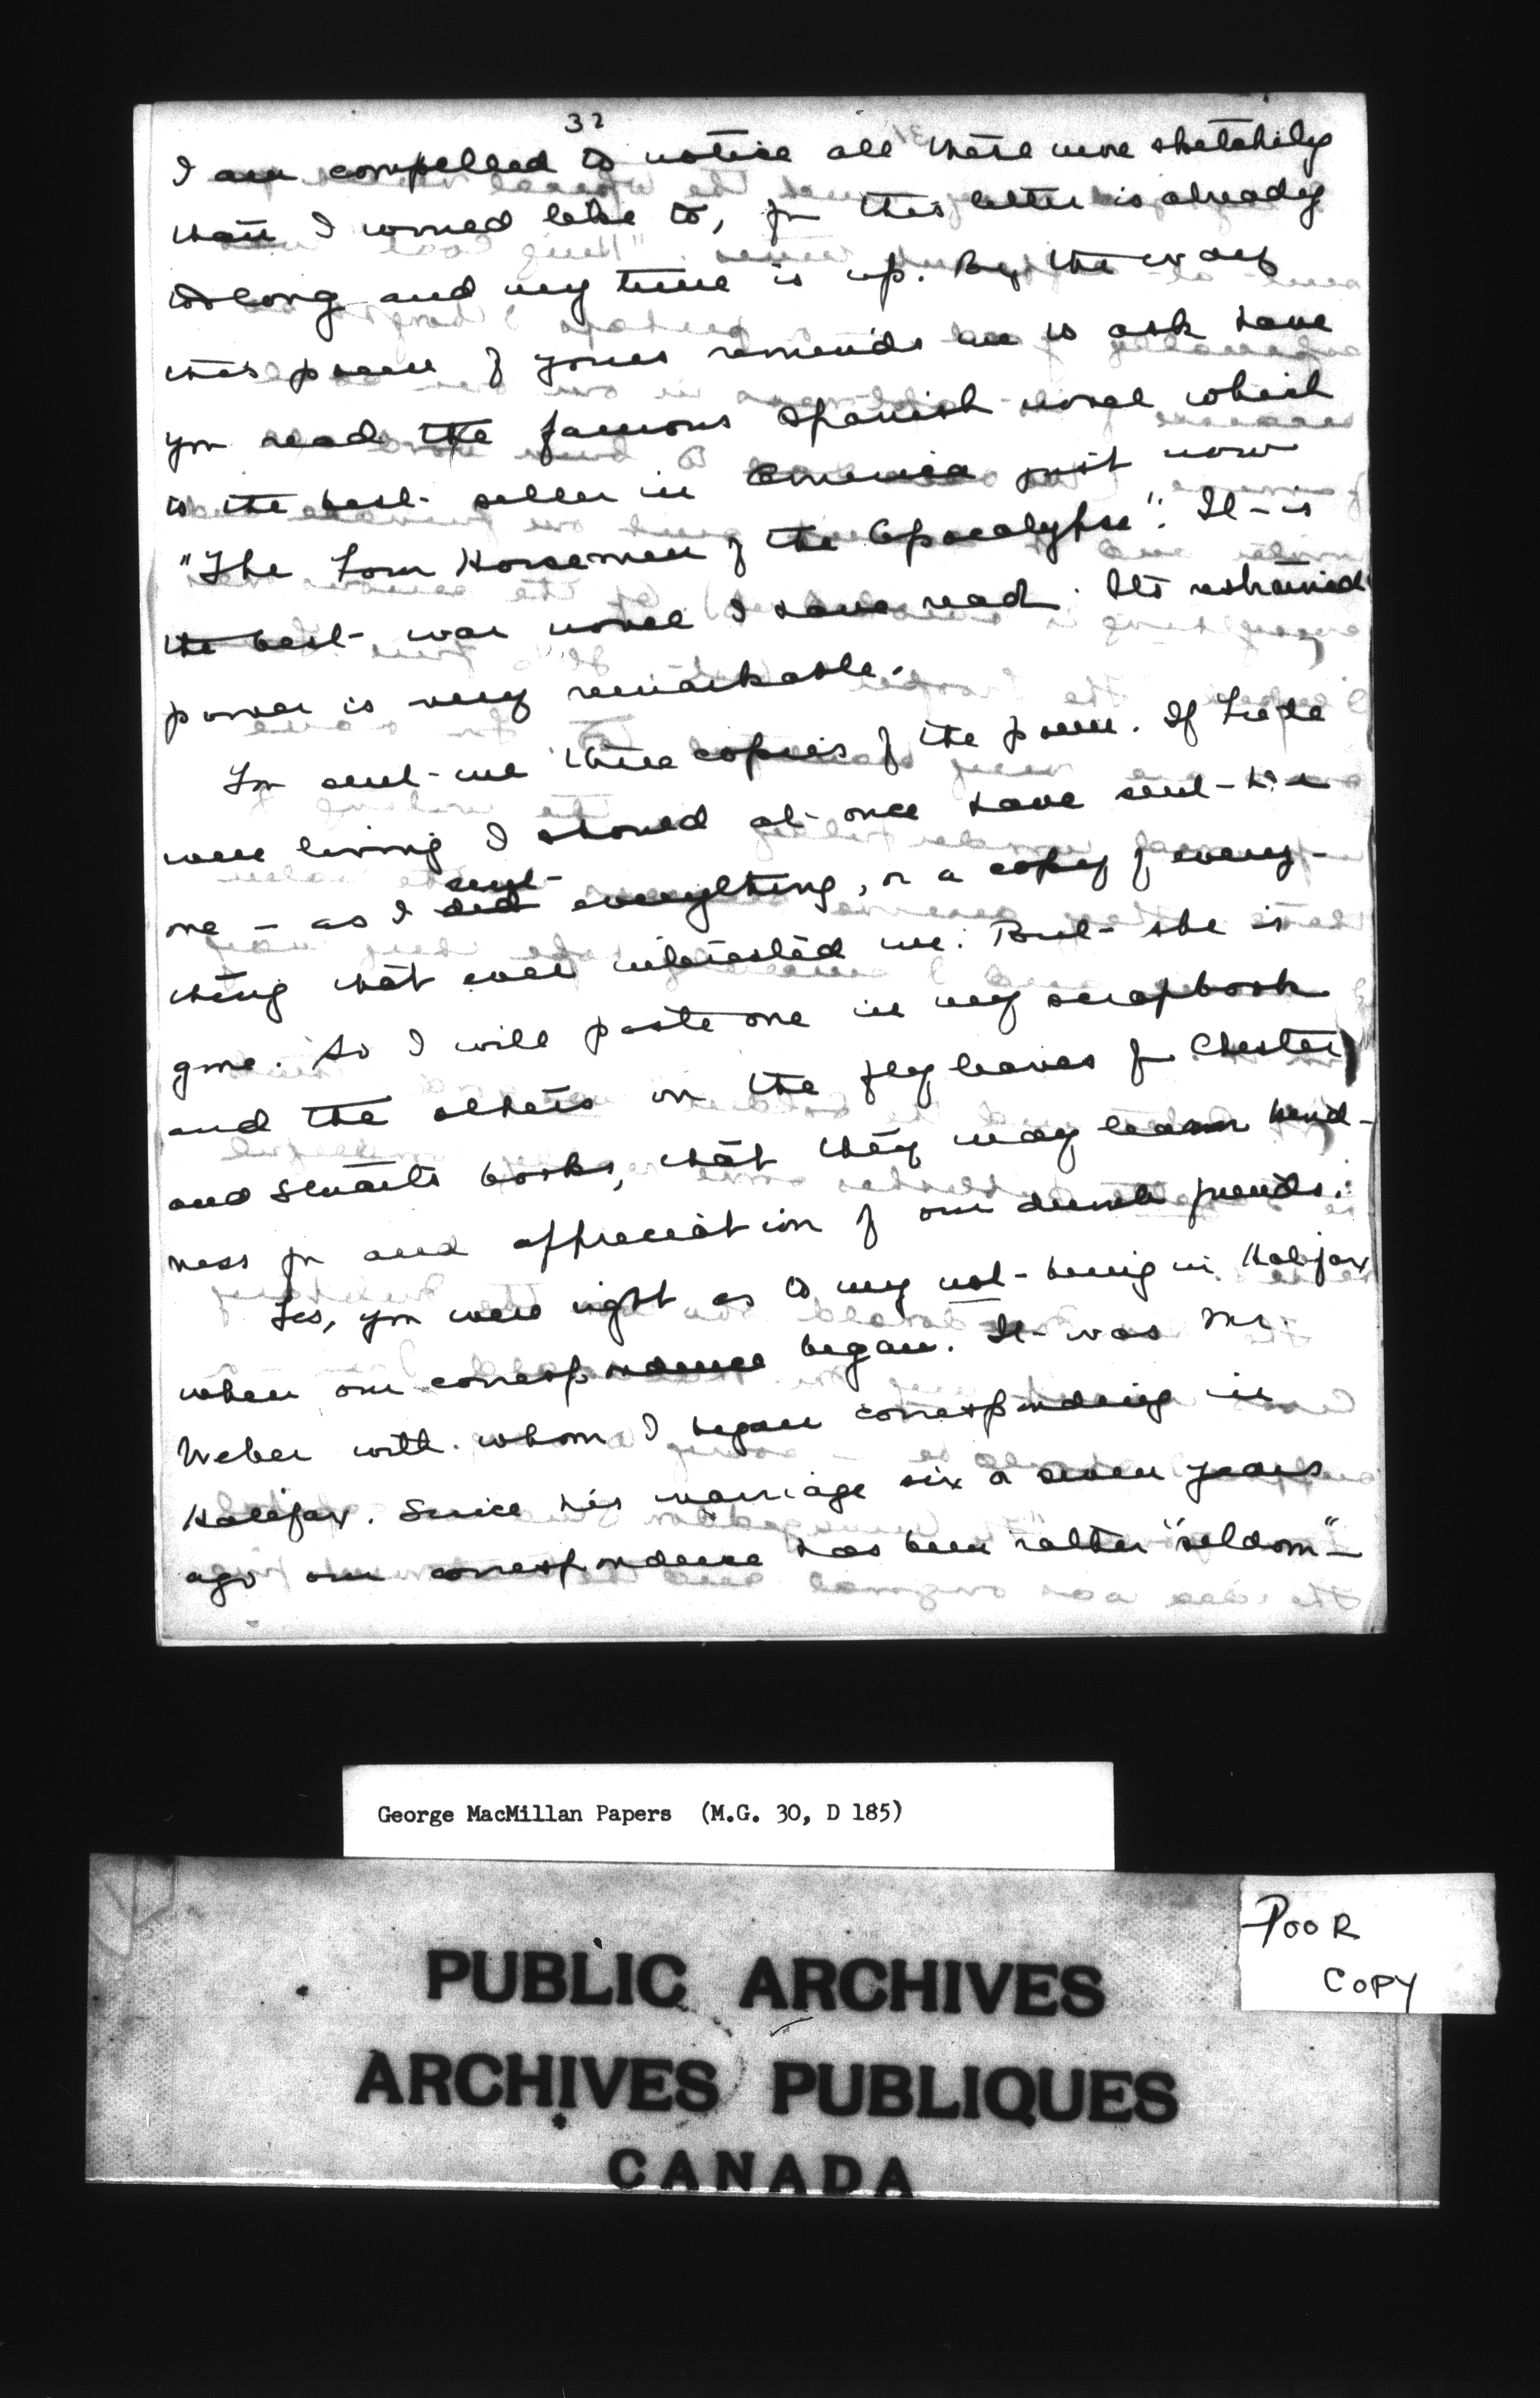 32
I am compelled to notice all these more sketchily
than I would like to, for this letter is already
too long and my time is up. By the way
this poem of yours reminds me to ask have
you read the famous Spanish novel which
is the best-seller in America just now
"The Four Horsemen of the Apocalypse". It is
the best war novel I have read. Its restrained
power is very remarkable.
You sent me three copies of the poem. If Frede
were living I should at once have sent her
one – as I did sent everything, or a copy of every-
thing that ever interested me. But she is
gone. So I will paste one in my scrapbook
and the others on the fly leaves of Chester
and Stuart's books, that they may learn kind-
ness for and appreciation of our dumb friends.
Yes, you were right as to my not being in Halifax
when our correspondence began. It was Mr.
Weber with whom I began corresponding in
Halifax. Since his marriage six or seven years
ago our correspondence has been rather "seldom"
George MacMillan Papers (M.G. 30, D 185)
POOR
COPY
PUBLIC ARCHIVES
ARCHIVES PUBLIQUES
CANADA